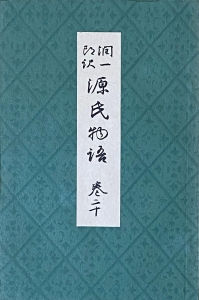 潤一郎訳
源氏物語
巻二十